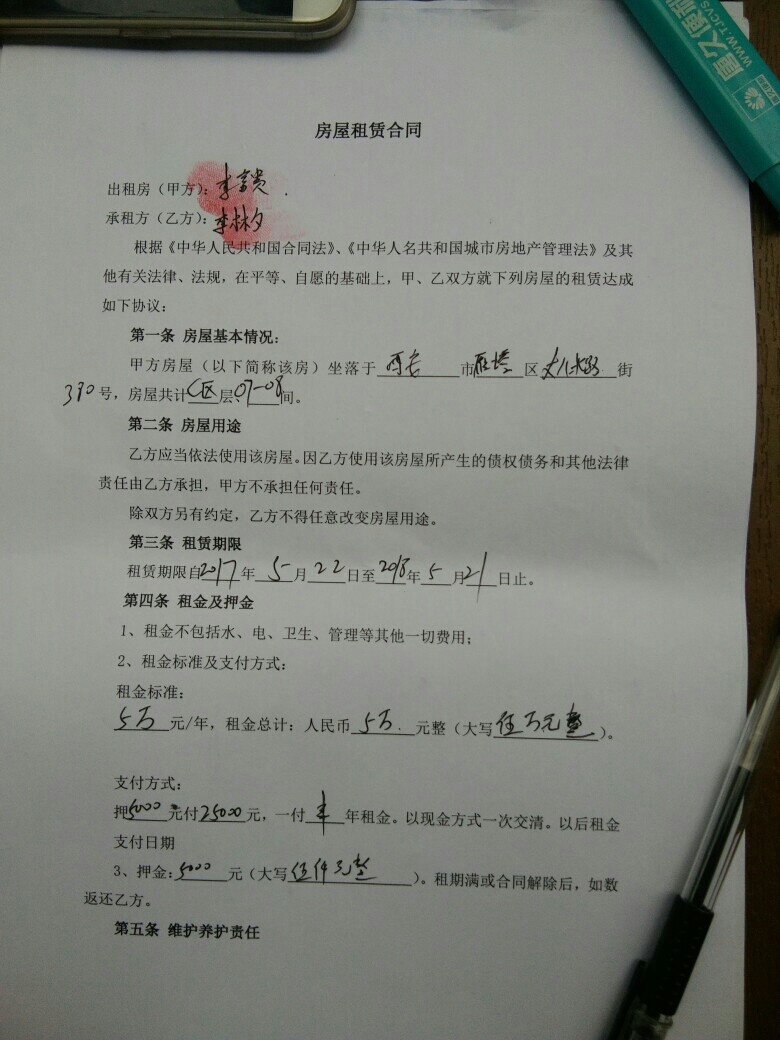 唐久便利
WWW.TJCVS
房屋租赁合同
出租房（甲方）：李富贵
承租方（乙方）：李林夕
根据《中华人民共和国合同法》、《中华人名共和国城市房地产管理法》及其
他有关法律、法规，在平等、自愿的基础上，甲、乙双方就下列房屋的租赁达成
如下协议：
第一条 房屋基本情况：
甲方房屋（以下简称该房）坐落于 西安 市 雁塔 区 丈八北路 街
390 号，房屋共计 C区 层、07-08 间。
第二条 房屋用途
乙方应当依法使用该房屋。因乙方使用该房屋所产生的债权债务和其他法律
责任由乙方承担，甲方不承担任何责任。
除双方另有约定，乙方不得任意改变房屋用途。
第三条 租赁期限
租赁期限自 2017 年 5 月 22 日至 2018 年 5 月 21 日止。
第四条 租金及押金
1、租金不包括水、电、卫生、管理等其他一切费用；
2、租金标准及支付方式：
租金标准：
5万 元/年，租金总计：人民币 5万 元整（大写 伍万元整 ）。
支付方式：
押 5000 元付 25000 元，一付 半 年租金。以现金方式一次交清。以后租金
支付日期
3、押金：5000 元（大写 伍仟元整 ）。租期满或合同解除后，如数
返还乙方。
第五条 维护养护责任